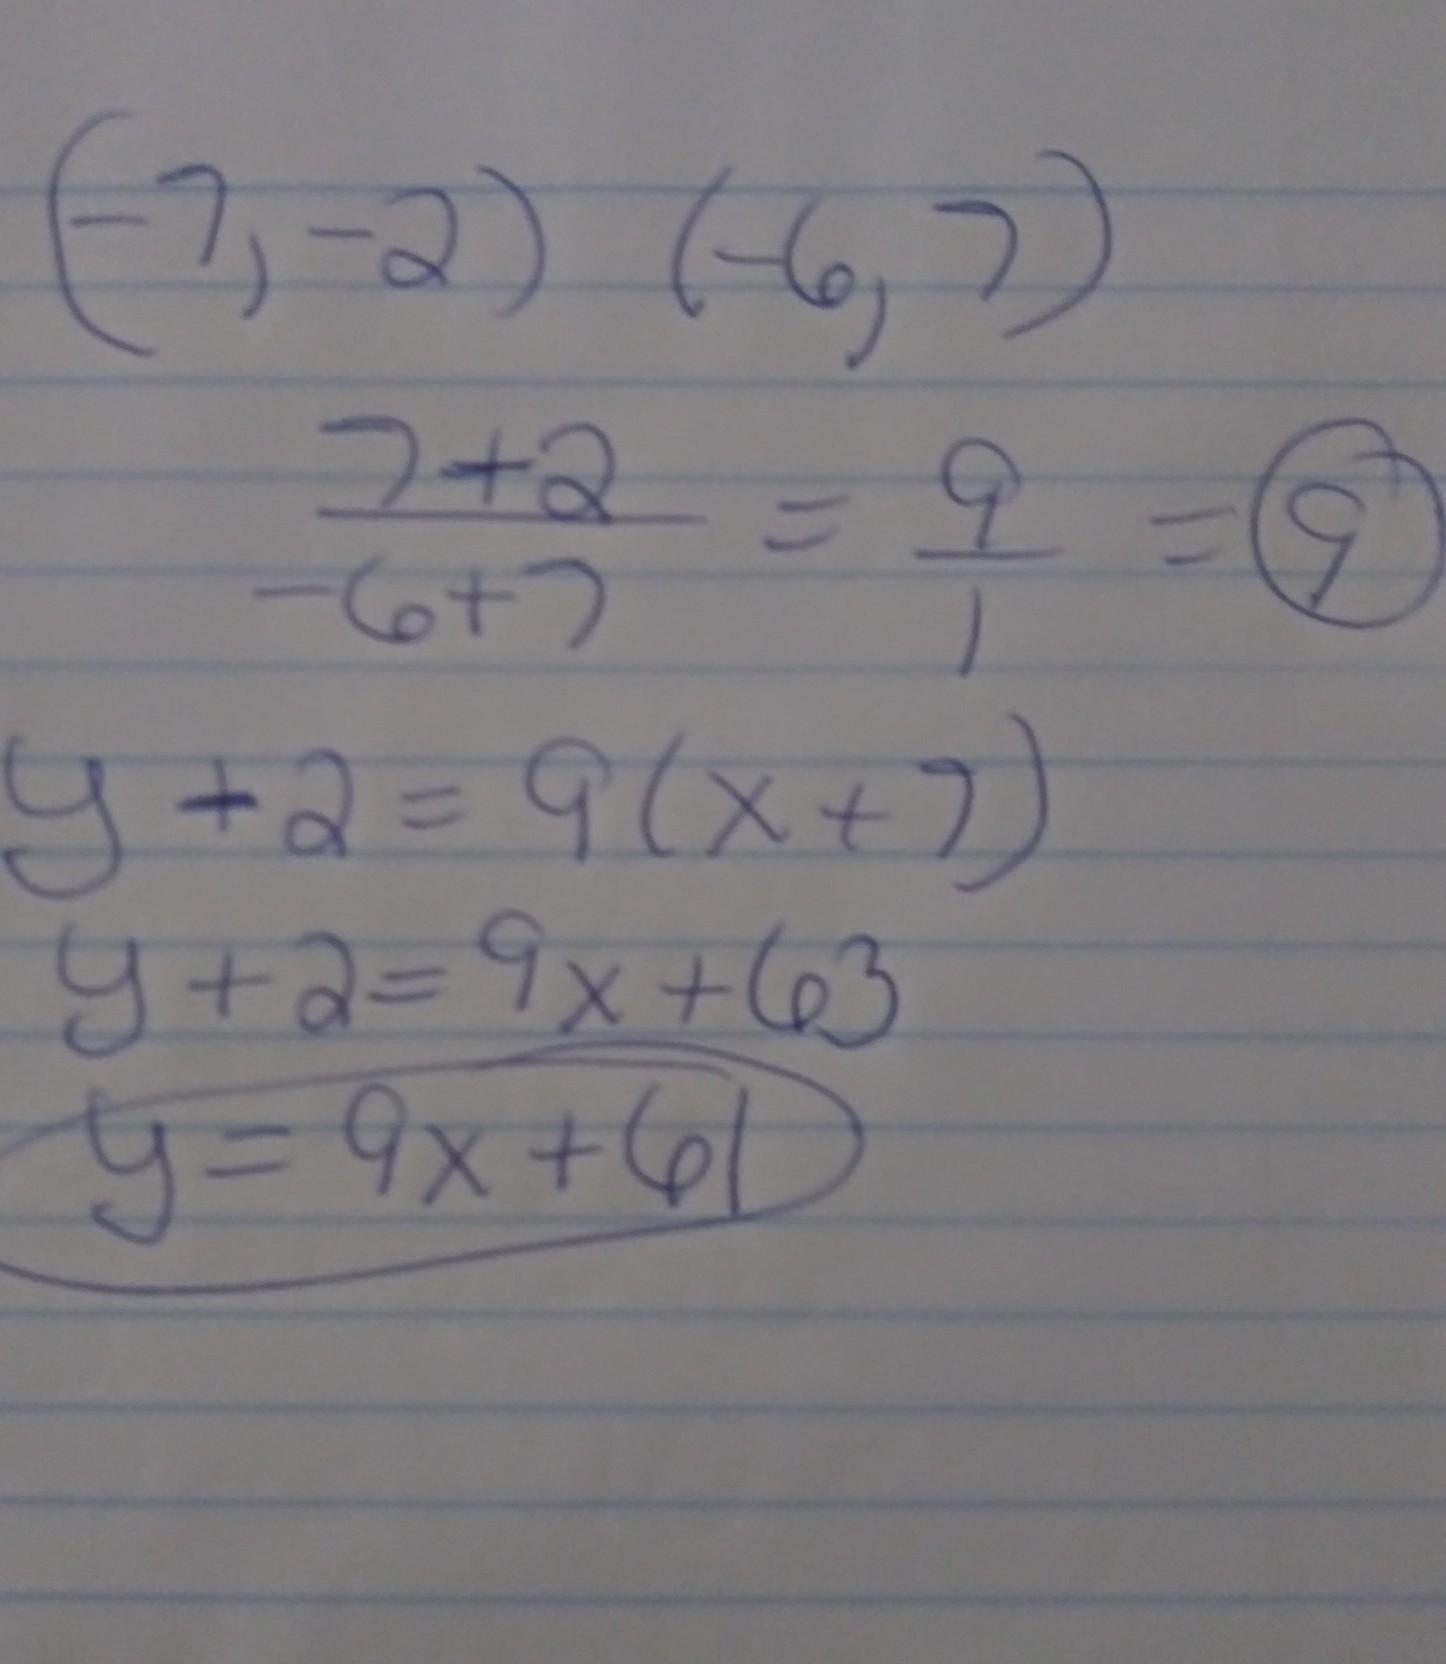 (-7, -2) (-6, 7)
7+2/-6+7 = 9/1 = 9
y + 2 = 9(x + 7)
y + 2 = 9x + 63
y = 9x + 61